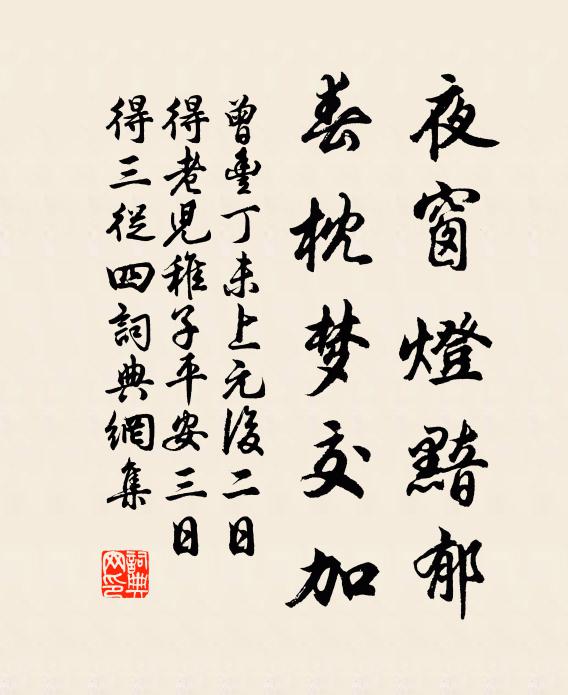 夜窗燈黯郁
春枕梦交加
曾豊丁未上元後二日
得老児稚子平安三日
得三從四詞典網集
詞典网印